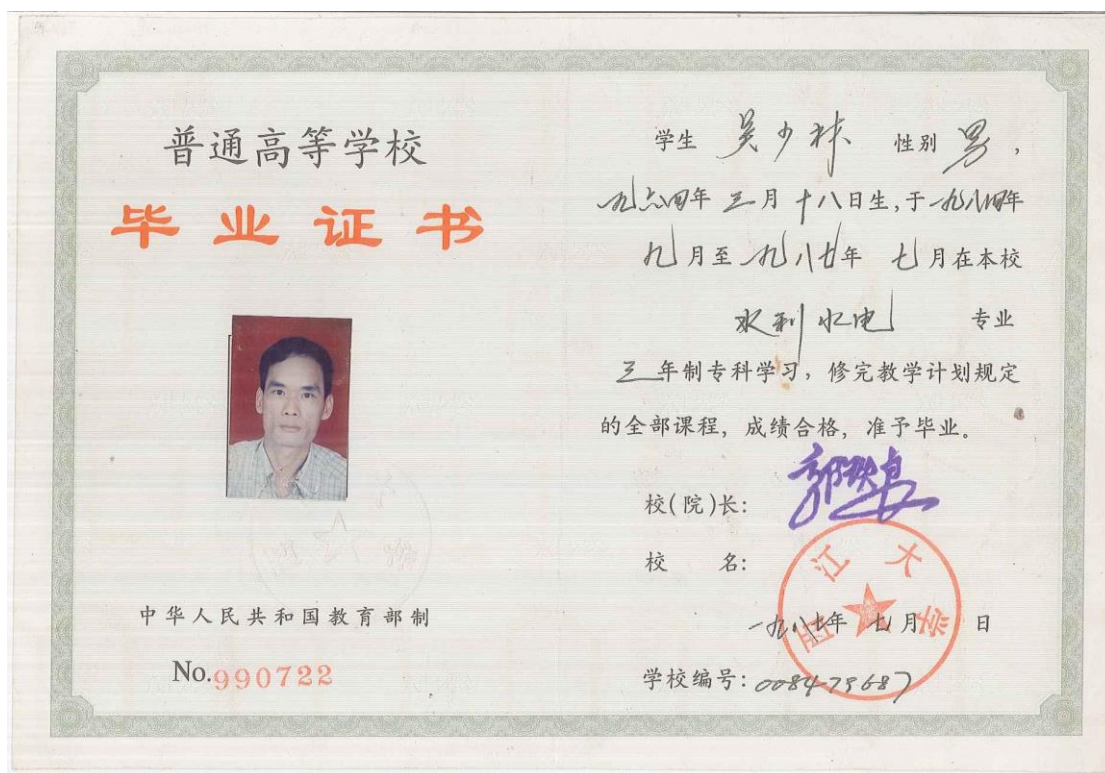 普通高等学校
毕业证书
中华人民共和国教育部制
No.990722
学生 吴少林 性别 男,
一九六四年 三月 十八日生,于一九八四年
九月至一九八七年 七月在本校
水利水电 专业
三年制专科学习,修完教学计划规定
的全部课程,成绩合格,准予毕业。
校(院)长:
校 名:
西江大学
一九八七年 七月 日
学校编号:008479687